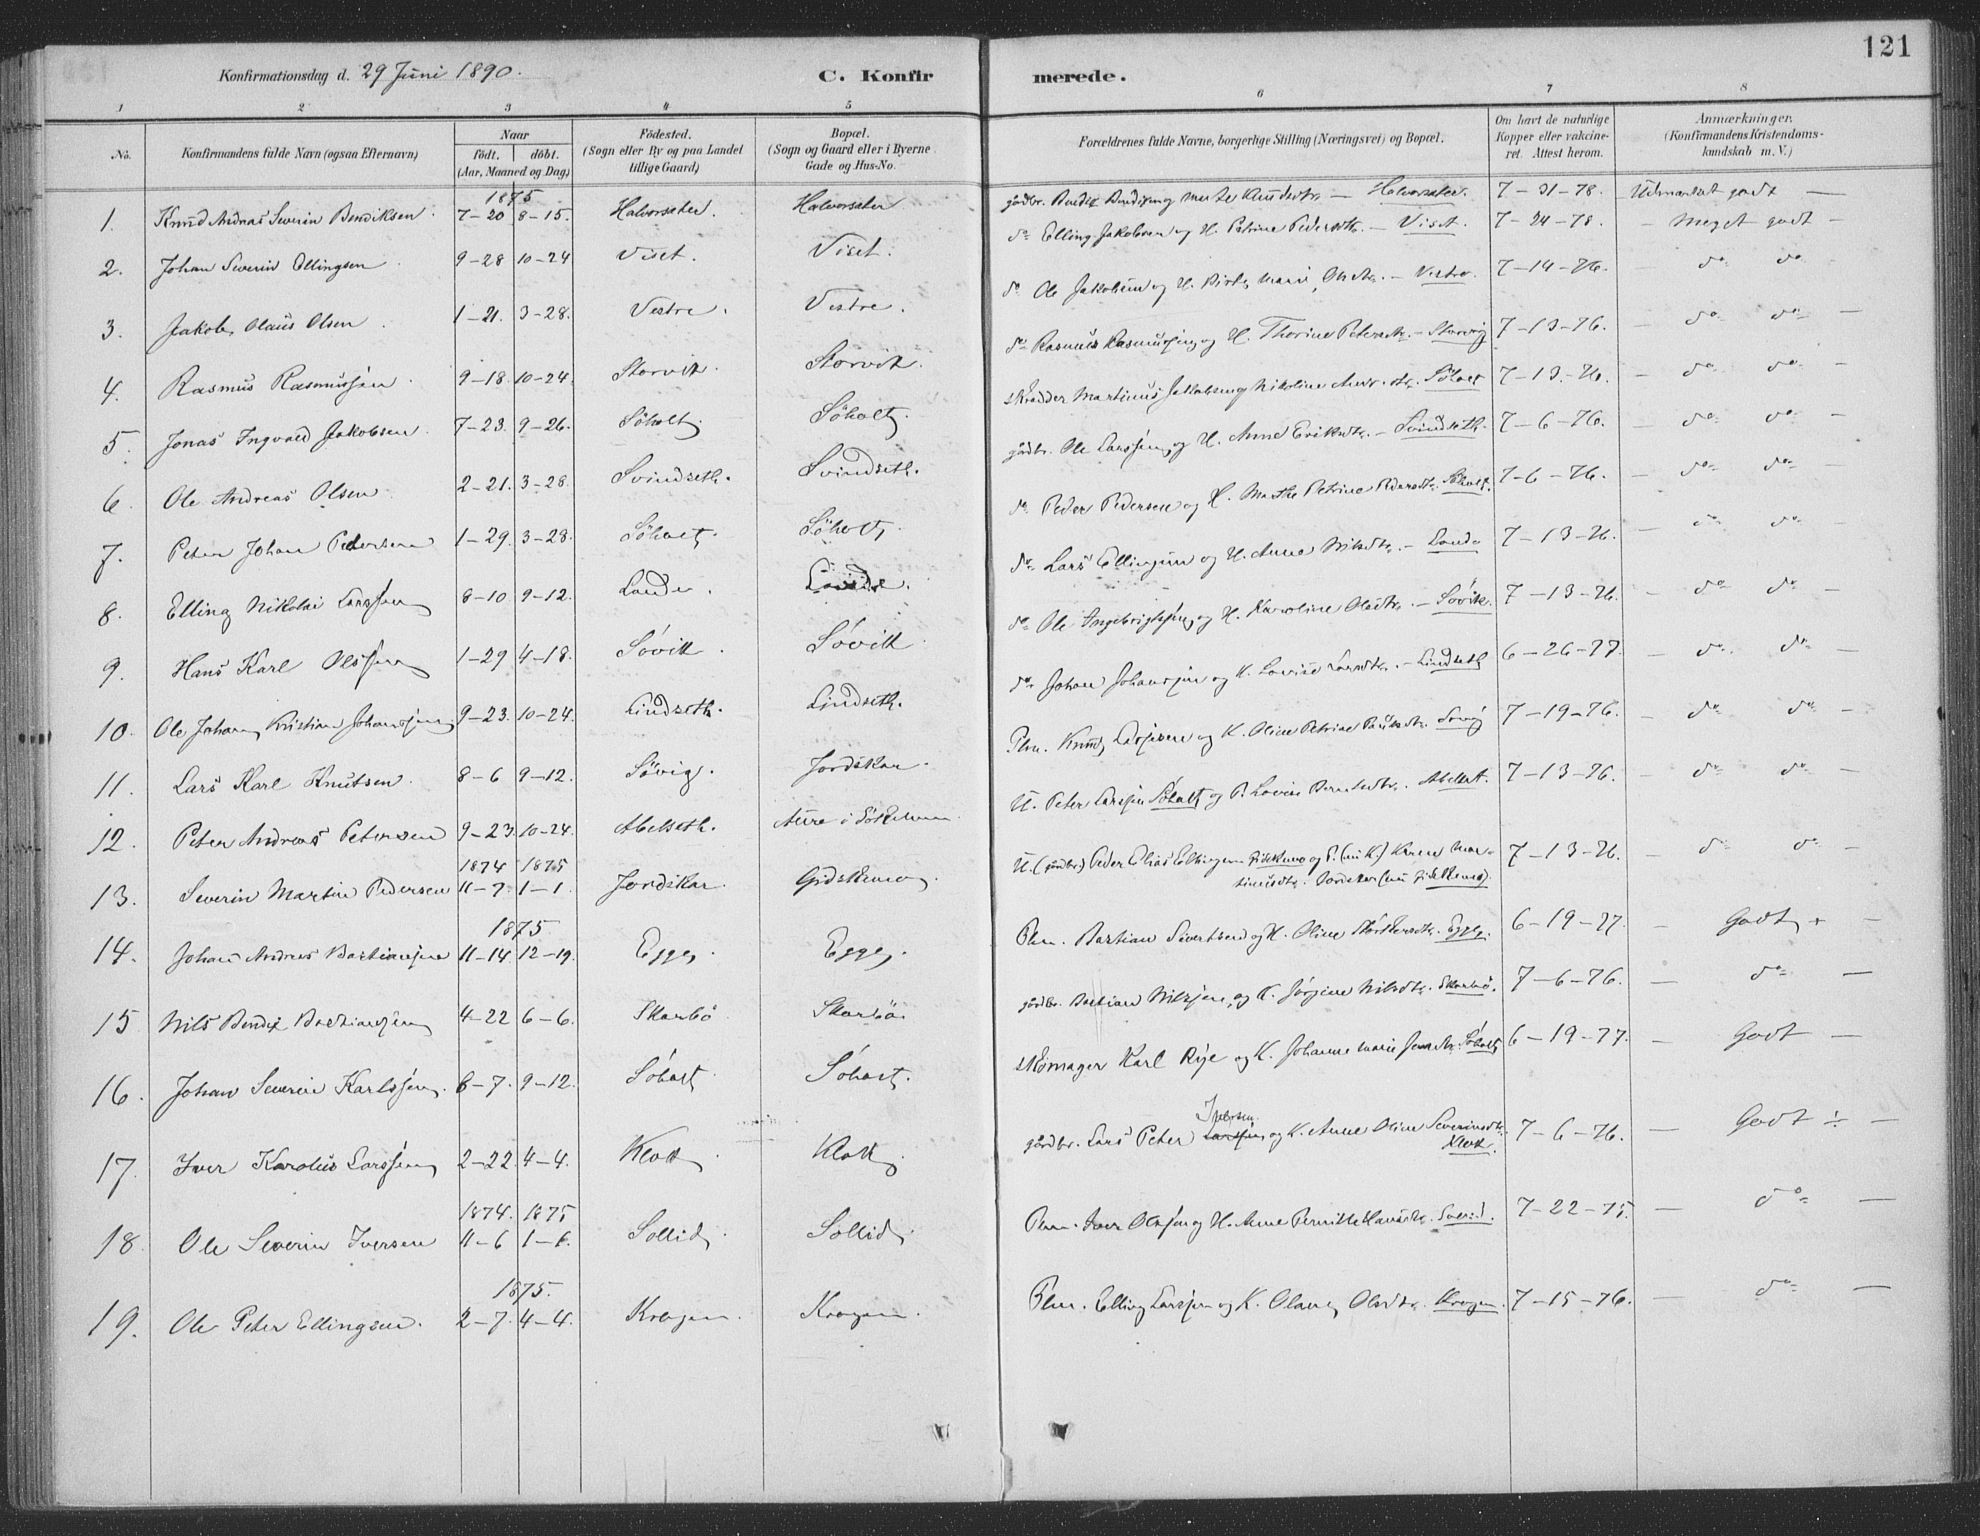 121
Konfirmationsdag d. 29 Juni 1890. C. Konfirmerede.
1 2 3 4 5 6 7 8
No. Konfirmandens fulde Navn (ogsaa Efternavn) Naar födt. döbt. (Aar, Maaned og Dag) Födested. (Sogn eller By og paa Landet tillige Gaard) Bopæl. (Sogn og Gaard eller i Byerne Gade og Hus-No. Forældrenes fulde Navne, borgerlige Stilling (Næringsvei) og Bopæl. Om havt de naturlige Kopper eller vakcineret. Attest herom. Anmærkninger. (Konfirmandens Kristendomskundskab m. V.)
1875
1. Knud Andreas Severin Bendiksen. 7-20 8-15. Halvorsæter. Halvorsæter gårdbr. Bendix — Halvorsæter. 7-31-78. Udmærket godt —
2. Johan Severin Ellingsen 9-28 10-24 Viset. Viset. do Elling Jakobsen og H. Petrine Pedersdtr. — Viset. 7-24-78. — Meget godt —
3. Jakob Olaus Olsen 1-21. 3-28. Vestre. Vestre. do Ole Jakobsen og H. Marie Olsdtr. — Vestre. 7-14-76. — do do —
4. Rasmus Rasmussen 9-18. 10-24. Storvik. Storvik. do Rasmus Rasmussen og H. Thorine Petersdtr. — 7-13-76. — do do —
5. Jonas Ingvald Jakobsen 7-23. 9-26. Söholt. Söholt. Skrædder Martinus Jakobsen og Nikoline Söholt 7-13-76. — do do —
6. Ole Andreas Olsen 2-21. 3-28. Svindseth. Svindseth. gårdbr. Ole Larssen og H. Anne Eriksdtr. — Svindseth. 7-6-76. — do do —
7. Peter Johan Pedersen 1-29. 3-28. Söholt. Söholt. do Peder Pedersen og H. Marthe Petrine Pedersdtr. Söholt. 7-6-76. — do do —
8. Elling Nikolai Larssen 8-10 9-12. Lande. Lande. do Lars Ellingsen og H. Anne Nilsdtr. — Lande 7-13-76. — do do —
9. Hans Karl Olssen 1-29 4-18. Sövik. Sövik. do Ole Ingebrigtsen og H. Karoline Olsdtr. — Sövik. 7-13-76. — do do —
10. Ole Johan Kristian Johansen 9-23. 10-24. Lindseth. Lindseth. do Johan Johansen og K. Lovise Larsdtr. — Lindseth 6-26-77. — do do —
11. Lars Karl Knutsen. 8-6 9-12. Sövig. Jordskar. Plm. Knud og K. Oline Petrine 7-19-76. — do do —
12. Peter Andreas Petersen 9-23. 10-24. Abelseth. Aure i U. Peter Larssen Söholt og P. Lovise Abelset. 7-13-76. — do do —
1874 1875
13. Severin Martin Pedersen 11-7. 1-1. Jordskar. U. (gårdbr.) Peder Elias Ellingsen og P. (nu K.) Karen Martinusdtr. Jordskar 7-13-76. — do do —
1875.
14. Johan Andreas Bastiansen 11-14. 12-19. Egge. Egge. Plm. Bastian Sivertsen og K. Oline Egge. 6-19-77. — Godt + —
15 Nils Bendix Bastiansen 4-22 6-6. Skarbö Skarbö. gårdbr. Bastian Nilsen og K. Jörgine Nilsdtr. Skarbö. 7-6-76. — do —
16. Johan Severin Karlssen. 6-7. 9-12. Söholt Söholt. Skomager Karl Rye og K. Johanne Marie Söholt 6-19-77. — Godt —
17. Iver Karolus Larssen 2-22. 4-4. Klok Klok. gårdbr. Lars Peter Iversen og K. Anne Oline Severinsdtr. Klok. 7-6-76. — Godt ÷ —
1874. 1875
18. Ole Severin Iversen 11-6 1-6. Sollid. Sollid. Plm. Iver Olssen og H. Anne Pernille Hansdtr. 7-22-75. — do —
1875.
19. Ole Peter Ellingsen. 2-7. 4-4. Kragen. Kragen. Plm. Elling Larssen og K. Olave Olsdtr. Kragen. 7-15-76. — do —